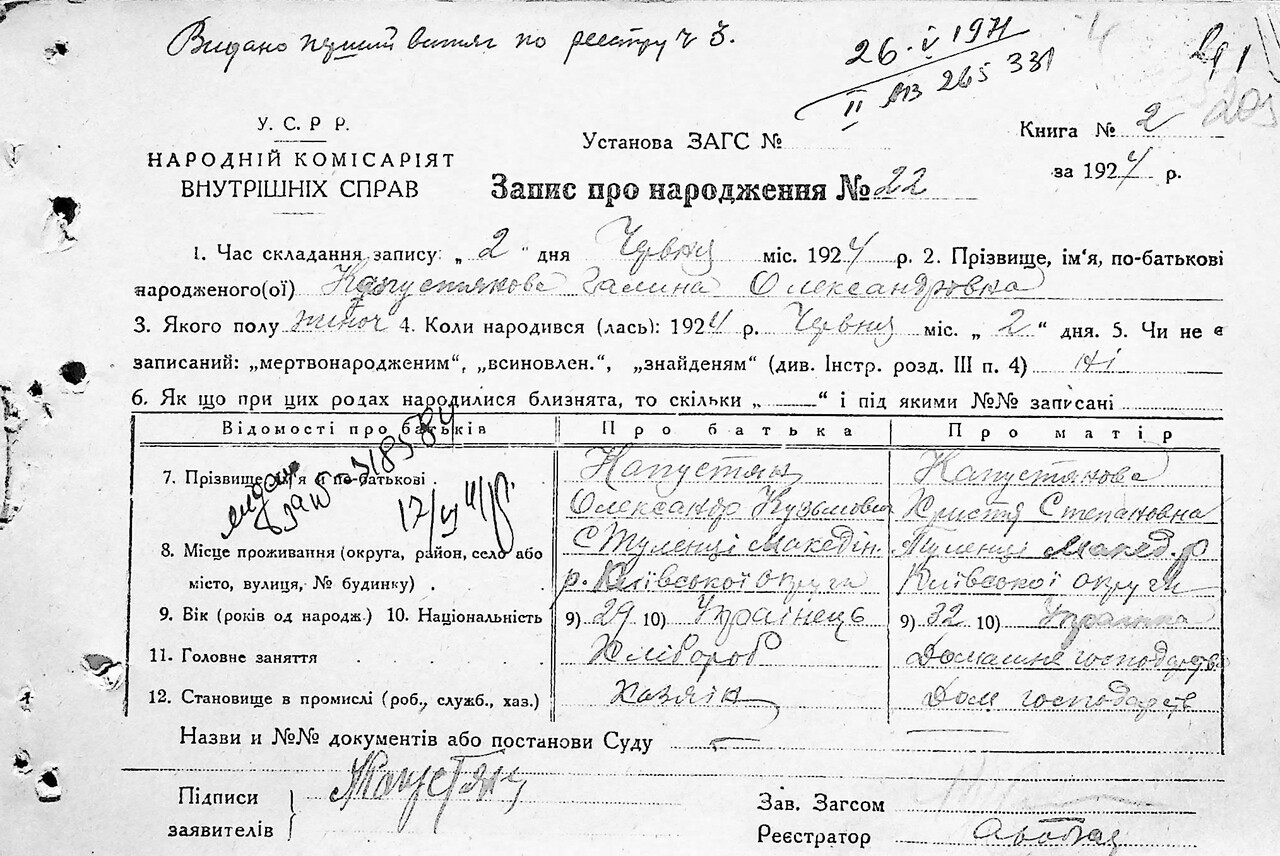 Видано перший витяг по реєстру ч 3.
26. V 1971
II АЗ 265 331
У. С. Р Р.
НАРОДНІЙ КОМІСАРІЯТ
ВНУТРІШНІХ СПРАВ
Установа ЗАГС №
Книга № 2
за 1924 р.
Запис про народження № 22
1. Час складання запису: „ 2 “ дня Червня міс. 1924 р. 2. Прізвище, ім'я, по-батькові
народженого(ої) Капустякова Галина Олександровна
3. Якого полу жіноч 4. Коли народився (лась): 1924 р. Червня міс. „ 2 “ дня. 5. Чи не є
записаний: „мертвонародженим“, „всиновлен.“, „знайденям“ (див. Інстр. розд. III п. 4) ні
6. Як що при цих родах народилися близнята, то скільки „ —— “ і під якими №№ записані
Відомості про батьків Про батька Про матір
7. Прізвище, ім'я й по-батькові . Капустян Капустякова
Олександр Кузьмович Христя Степановна
8. Місце проживання (округа, район, село або С Туленці Македін. Туленці Макед. р
місто, вулиця, № будинку) . р. Київської округи Київської округи
9. Вік (років од народж.) 10. Національність 9) 29 10) Українець 9) 32 10) Українка
11. Головне заняття . . . . Хлібороб Домашнє господарство
12. Становище в промислі (роб., служб., хаз.) Хазяїн Дом господарств
Назви и №№ документів або постанови Суду —
Підписи
заявителів
Капустян
Зав. Загсом
Реєстратор